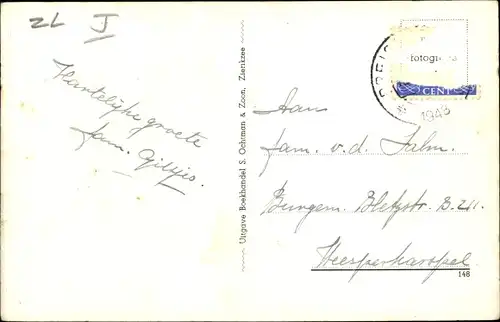 ZL J
Hartelijke groete
fam. Gilijs.
Uitgave Boekhandel S. Ochtman & Zoon, Zierikzee
fotogr
CENT
1948
Aan
fam. v. d. Salm.
Burgem. Bletzstr. B. 211.
Weesperkarspel
148